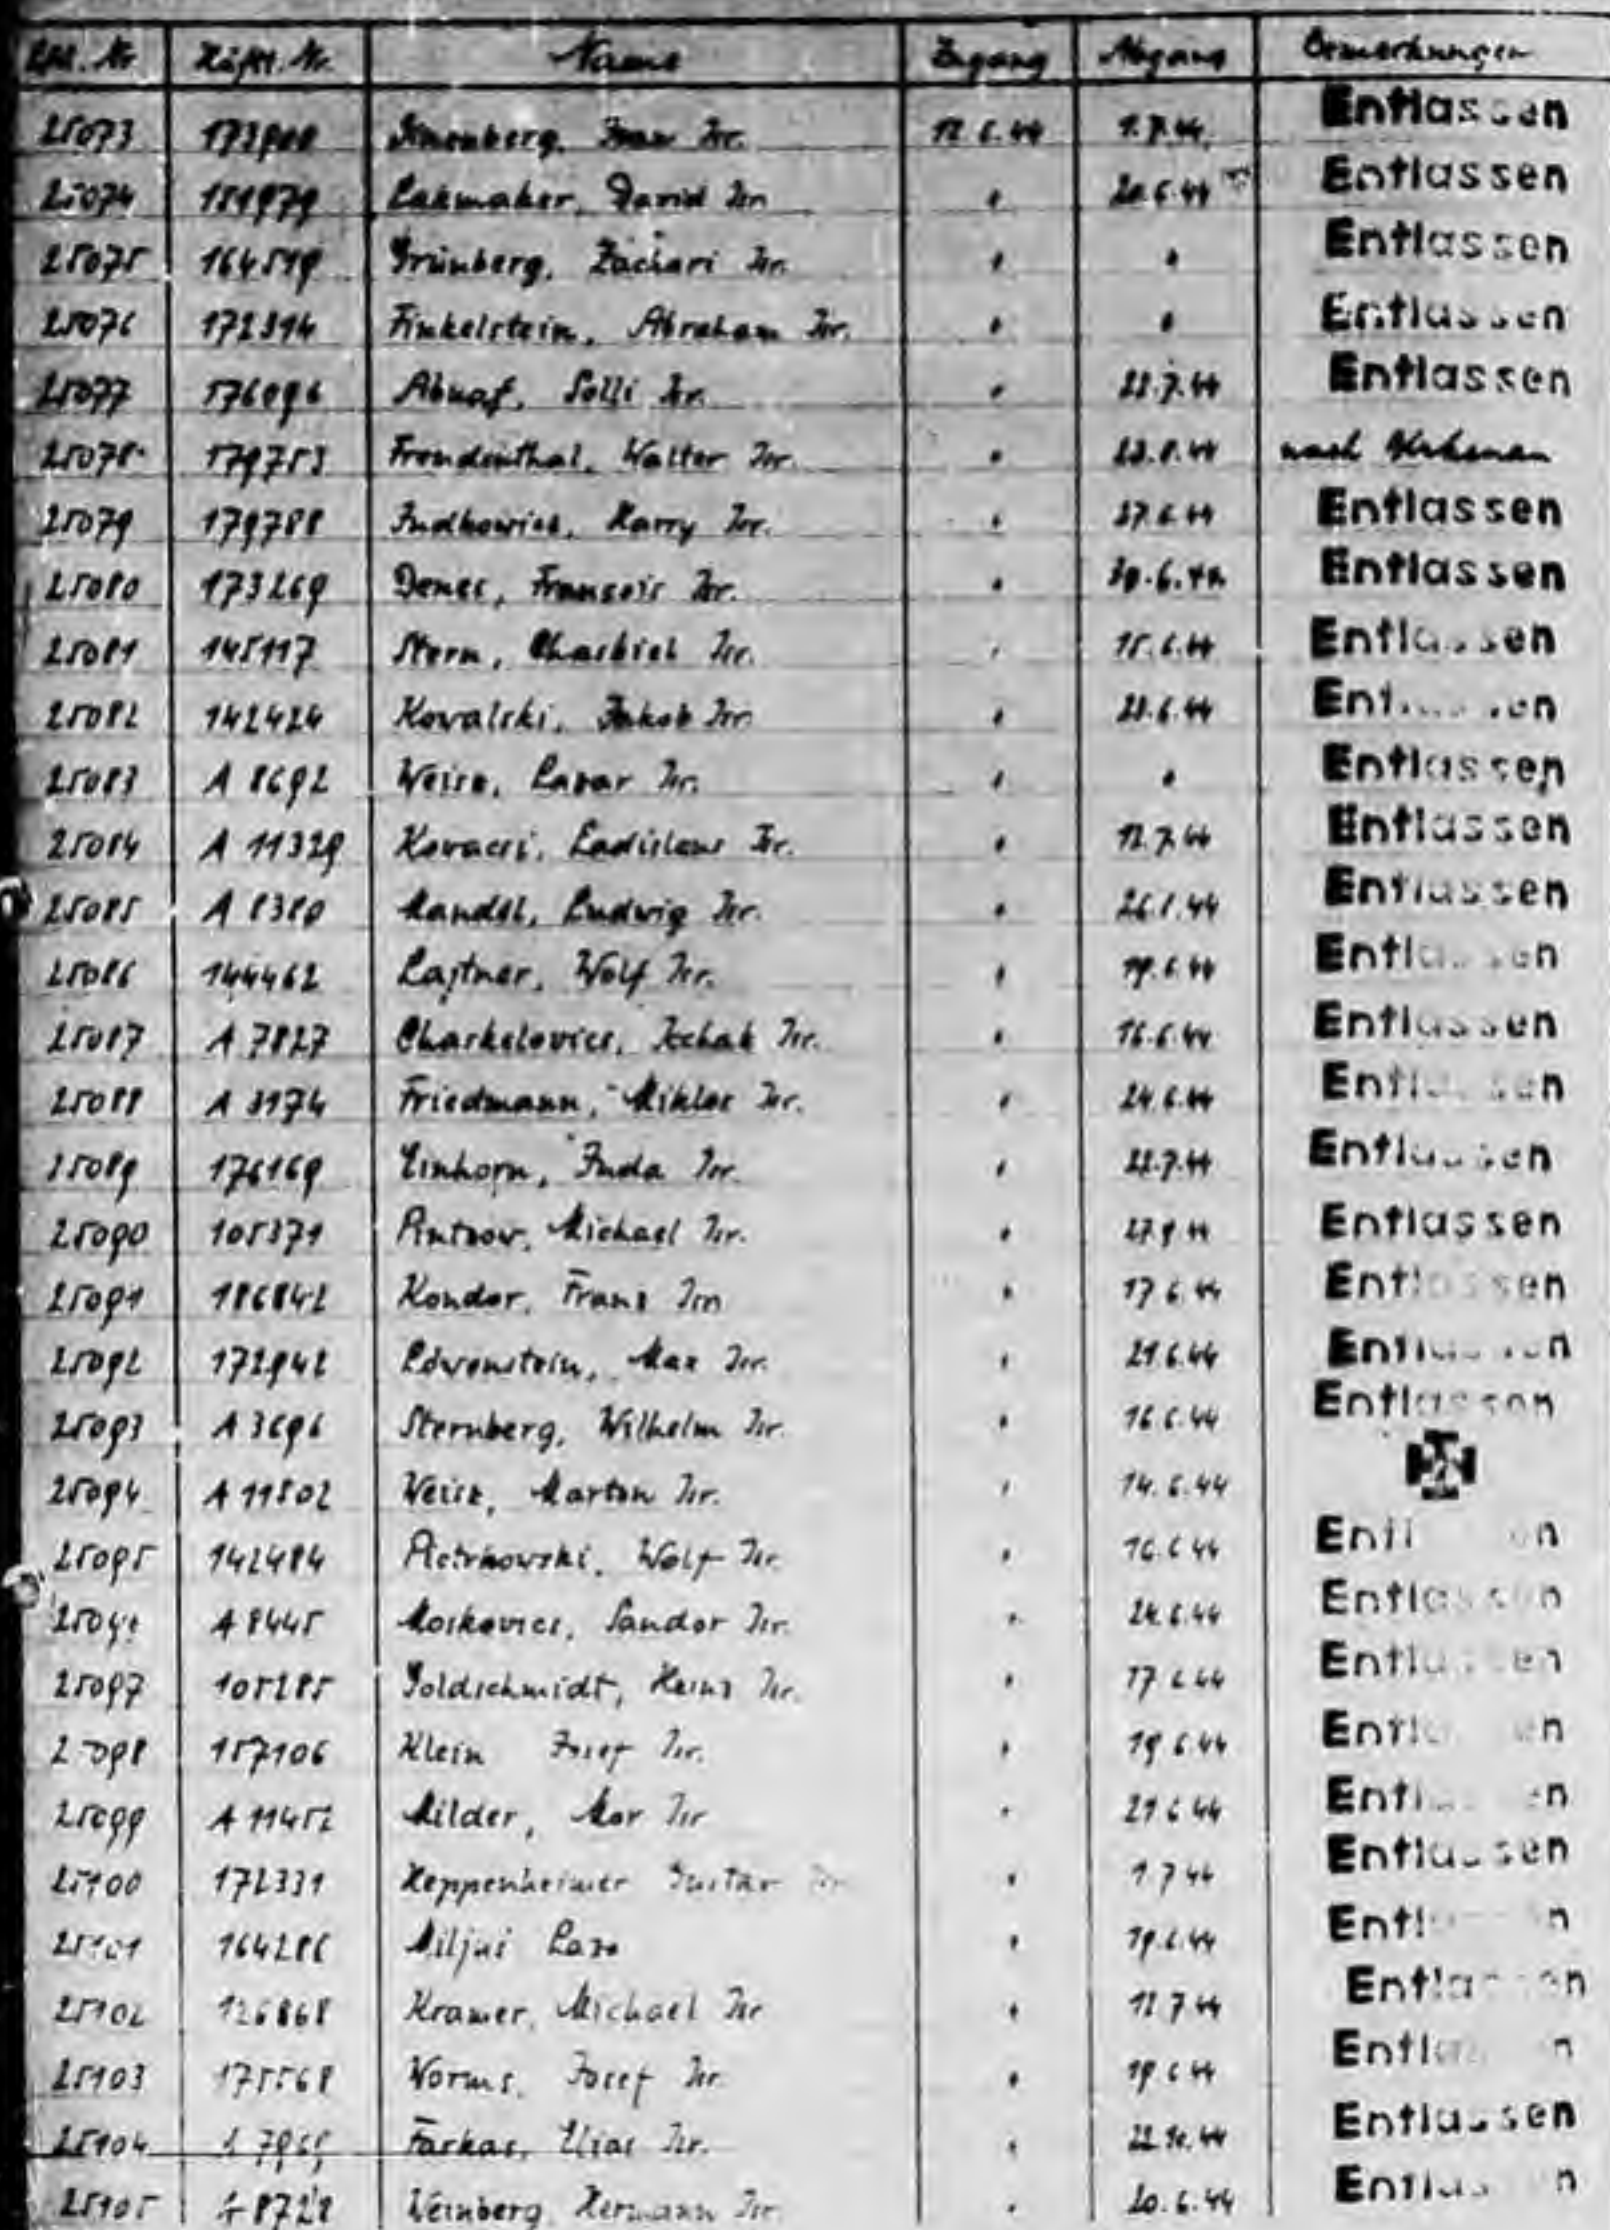 Lfd. Nr. Häftl. Nr. Name Zugang Abgang Bemerkungen
25073 Isr. 12.6.44 1.7.44 Entlassen
25074 Lakmaker, David Isr. " 20.6.44 Entlassen
25075 164519 Grünberg, Zachari Isr. " " Entlassen
25076 172314 Finkelstein, Abraham Isr. " " Entlassen
25077 176096 Abuaf, Solli Isr. " 22.7.44 Entlassen
25078 179753 Freudenthal, Walter Isr. " 23.8.44 nach
25079 179788 Judkowicz, Harry Isr. " 27.6.44 Entlassen
25080 173269 Denes, Francois Isr. " Entlassen
25081 145117 Stern, Isr. " 15.6.44 Entlassen
25082 142424 Kowalski, Jakob Isr. " 23.6.44 Entlassen
25083 A 8692 Weisz, Lazar Isr. " " Entlassen
25084 A 11329 Kovacsi, Ladislaus Isr. " 12.7.44 Entlassen
25085 A 8380 Mandel, Ludwig Isr. " Entlassen
25086 144462 Lajtner, Wolf Isr. " 19.6.44 Entlassen
25087 A 7827 Charkelovics, Isr. " 16.6.44 Entlassen
25088 A 3174 Friedmann, Miklos Isr. " 24.6.44 Entlassen
25089 176169 Einhorn, Juda Isr. " 22.7.44 Entlassen
25090 105371 Michael Isr. " Entlassen
25091 186842 Kondor, Franz Isr. " 17.6.44 Entlassen
25092 172942 Löwenstein, Max Isr. " 21.6.44 Entlassen
25093 A 3696 Sternberg, Wilhelm Isr. " 16.6.44 Entlassen
25094 A 11502 Weisz, Marton Isr. " 14.6.44
25095 142484 Pietrkowski, Wolf Isr. " 16.6.44 Entlassen
25096 A 8445 Moskovics, Sandor Isr. " 24.6.44 Entlassen
25097 105285 Goldschmidt, Heinz Isr. " 17.6.44 Entlassen
25098 157106 Klein Josef Isr. " 19.6.44 Entlassen
25099 A 11452 Milder, Mor Isr " 21.6.44 Entlassen
25100 172331 Heppenheimer Gustav Isr " 1.7.44 Entlassen
25101 164286 Lazo " 19.6.44 Entlassen
25102 126868 Kramer, Michael Isr " 12.7.44 Entlassen
25103 175568 Worms, Josef Isr. " 19.6.44 Entlassen
25104 Farkas, Elias Isr. " 22.10.44 Entlassen
25105 A 8728 Weinberg, Hermann Isr. " 20.6.44 Entlassen